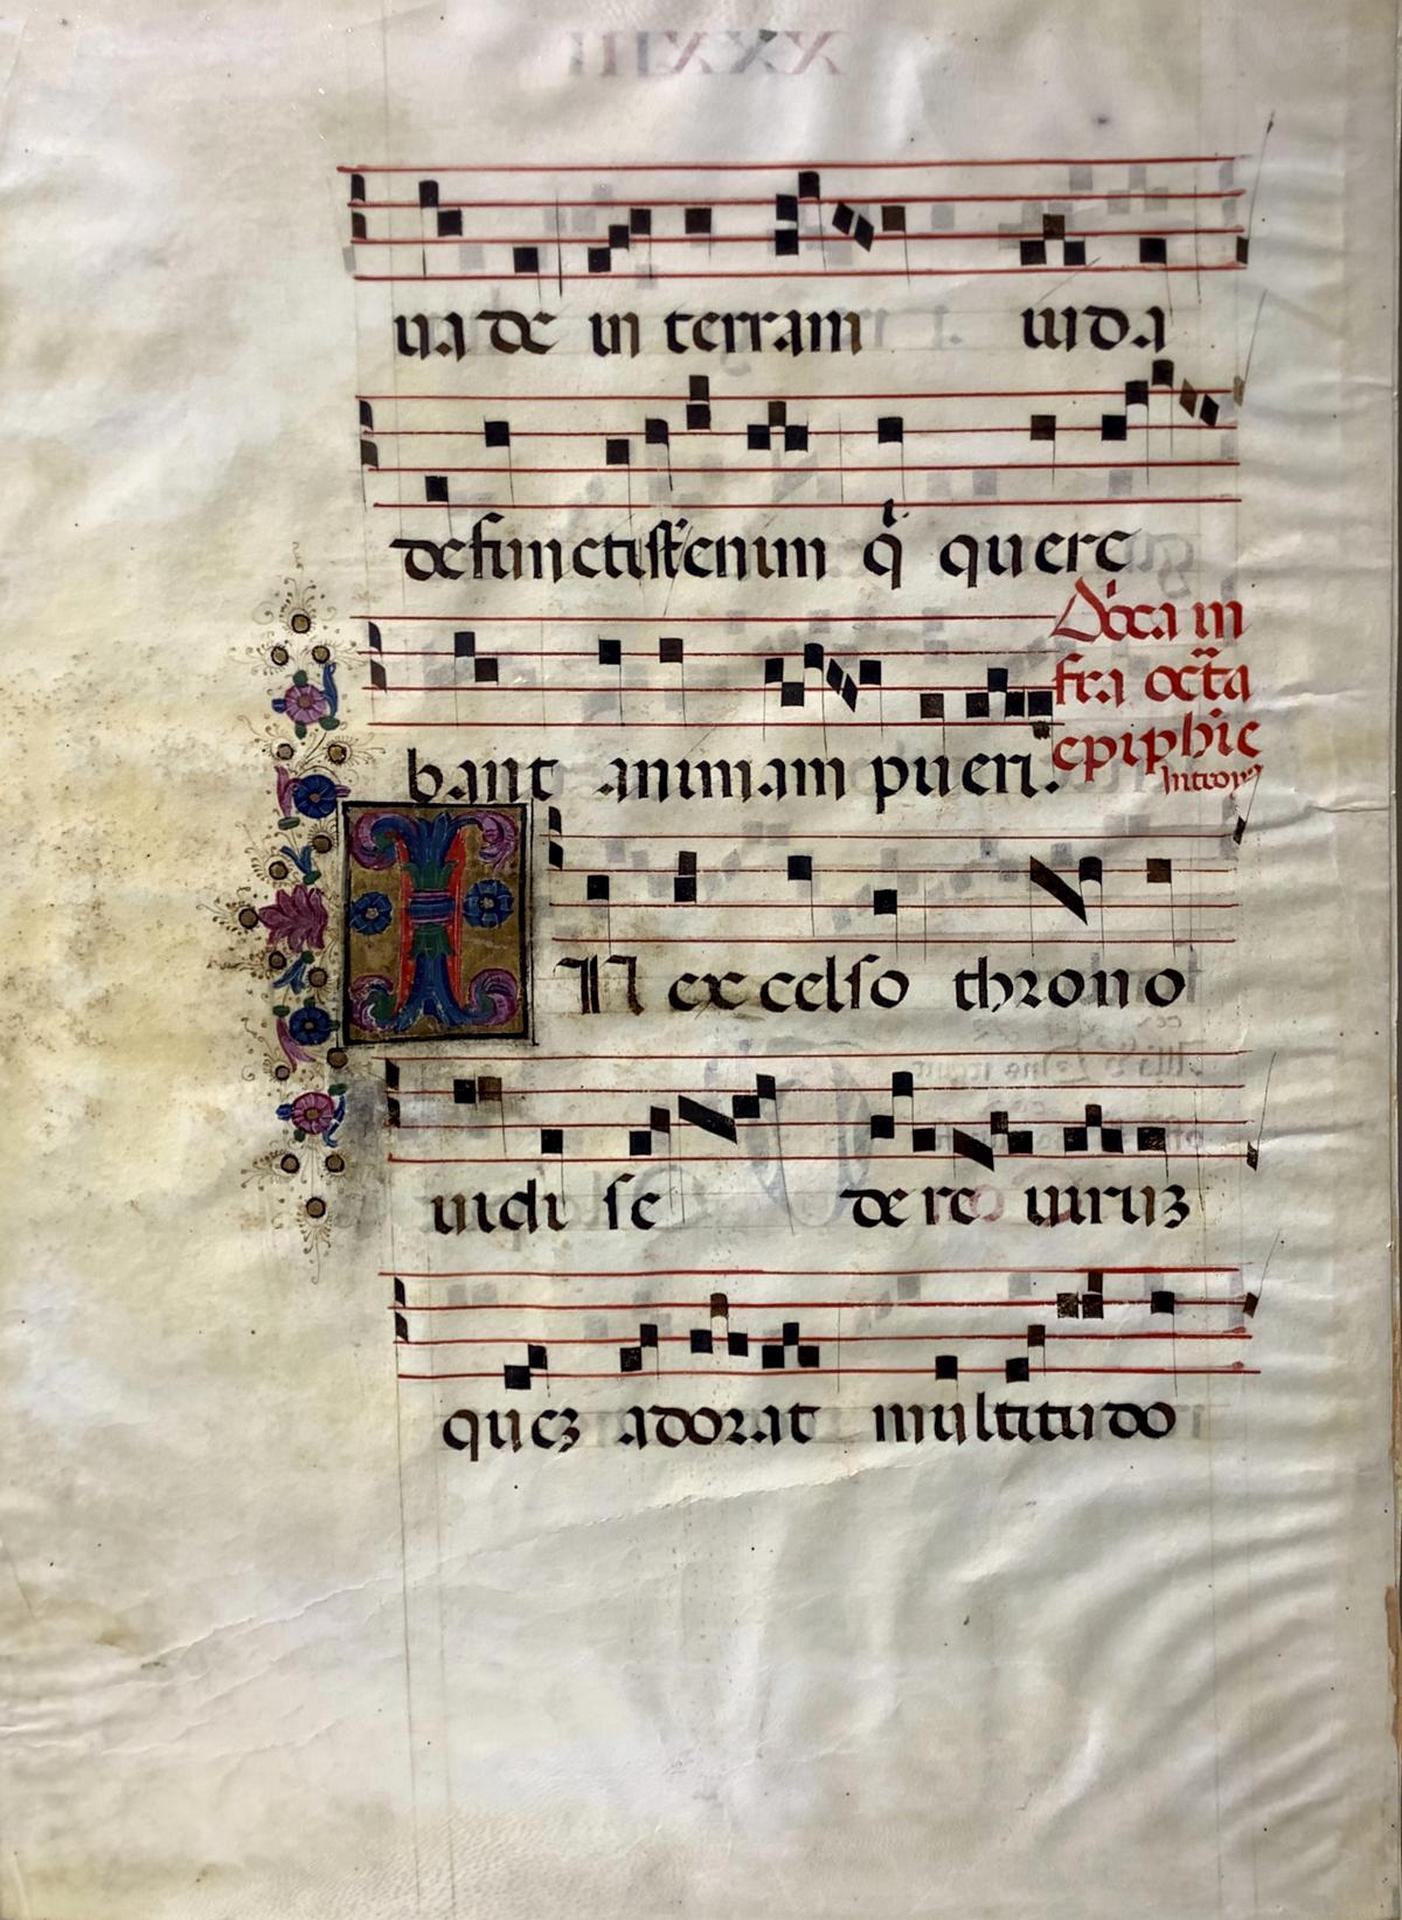 ua de in terram iuda
defuncti st' enim q' quere
bant animam pueri.
D'oca in
fra octa
epiphie
Introy'
IN excelso throno
uidi se dere uiruz
quez adorat multitudo